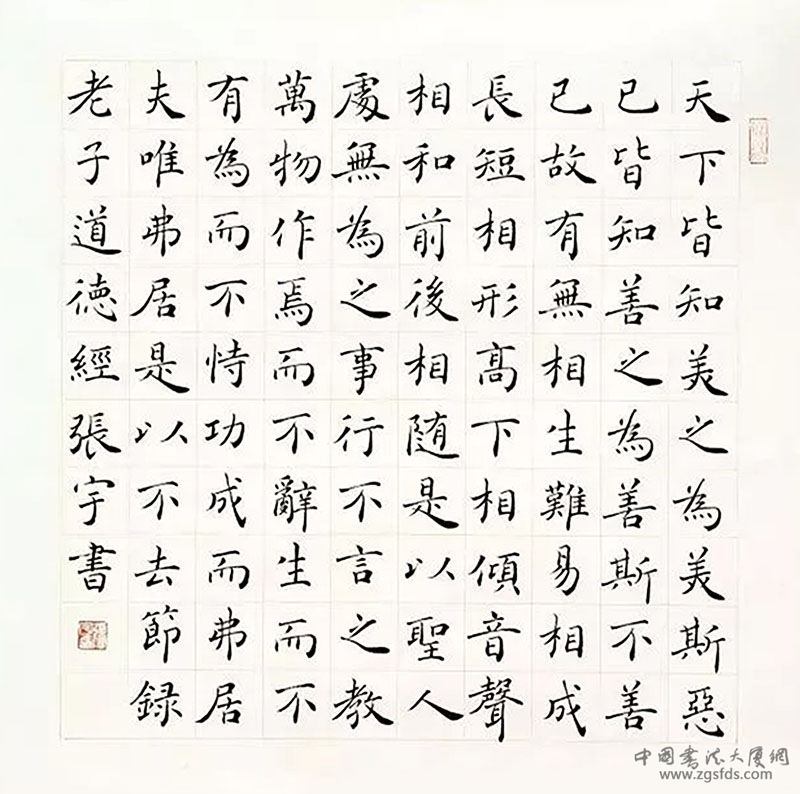 天下皆知美之為美斯惡
已皆知善之為善斯不善
已故有無相生難易相成
長短相形高下相傾音聲
相和前後相随是以聖人
處無為之事行不言之教
萬物作焉而不辭生而不
有為而不恃功成而弗居
夫唯弗居是以不去節録
老子道德經張宇書
中國書法大廈網
www.zgsfds.com